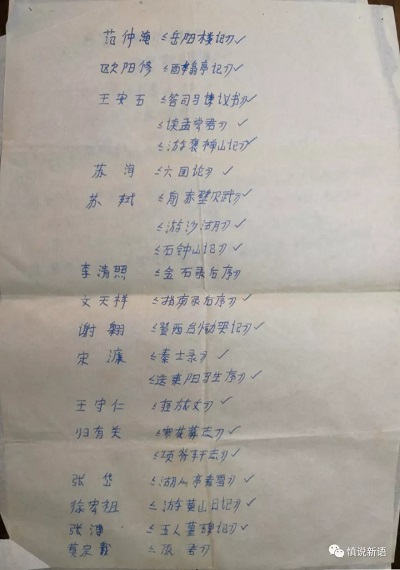 范仲淹 《岳阳楼记》✓
欧阳修 《酉翁亭记》✓
王安石 《答司马谏议书》✓
《读孟尝君》✓
《游褒禅山记》✓
苏洵 《六国论》✓
苏轼 《前赤壁赋》✓
《游沙湖》✓
《石钟山记》✓
李清照 《金石录后序》
文天祥 《指南录后序》✓
谢翱 《登西台恸哭记》✓
宋濂 《秦士录》✓
《送东阳马生序》✓
王守仁 《瘗旅文》✓
归有光 《寒花葬志》✓
《项脊轩志》✓
张岱 《湖心亭看雪》✓
徐宏祖 《游黄山日记》✓
张溥 《五人墓碑记》✓
《 君》✓
慎说新语